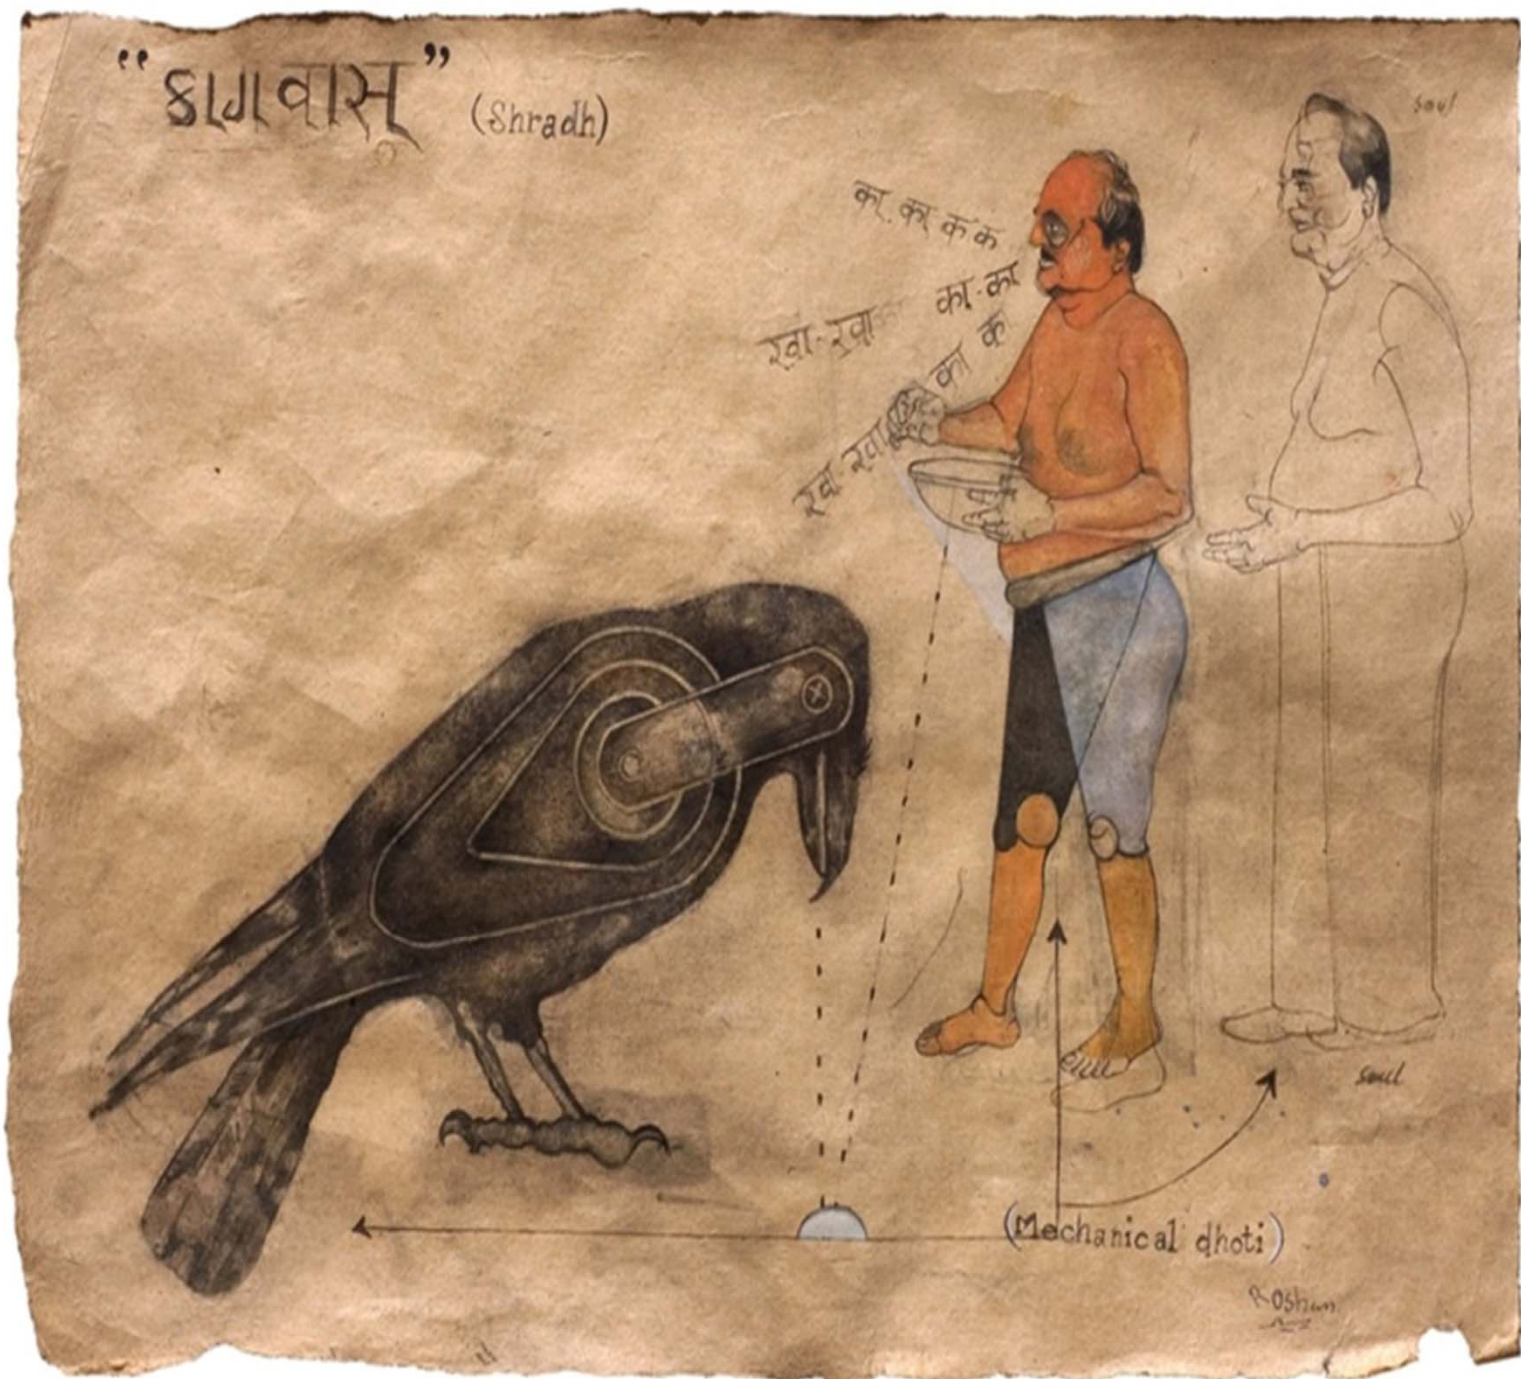 “કાગવાસ્” (Shradh)
soul
का. का क क
का. का
खा-खा
क
का
खा-खा
soul
(Mechanical dhoti)
Roshan